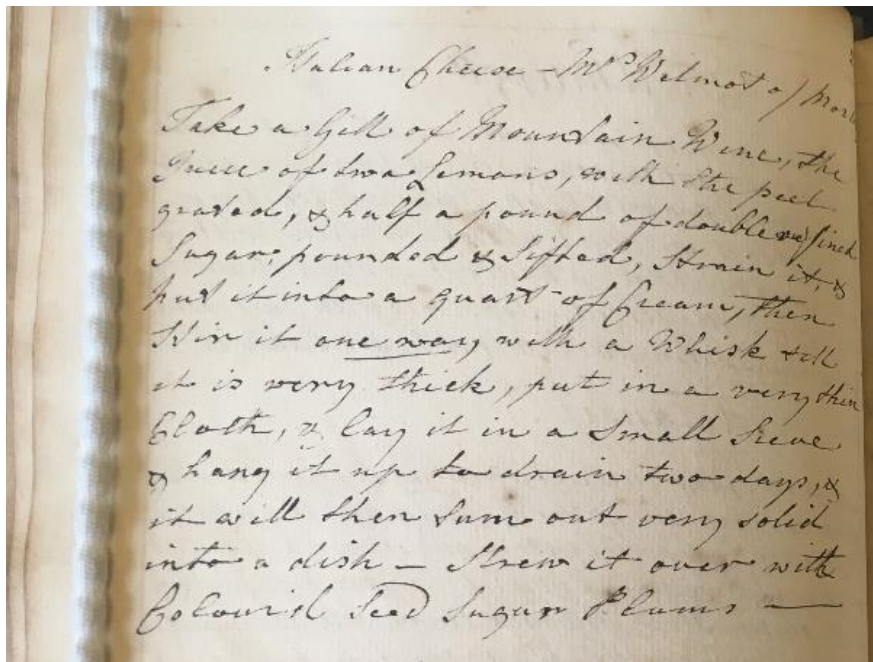 Italian Cheese – Mrs Wilmot of
Take a Gill of Mountain Wine, the
Juice of two Lemons, with the peel
grated, & half a pound of double refined
Sugar, pounded & Sifted, Strain it, &
put it into a quart of Cream, then
Stir it one way with a Whisk till
it is very thick, put in a very thin
Cloth, & lay it in a Small Sieve
& hang it up to drain two days, &
it will then turn out very solid
into a dish – Strew it over with
Colour'd Seed Sugar Plums —